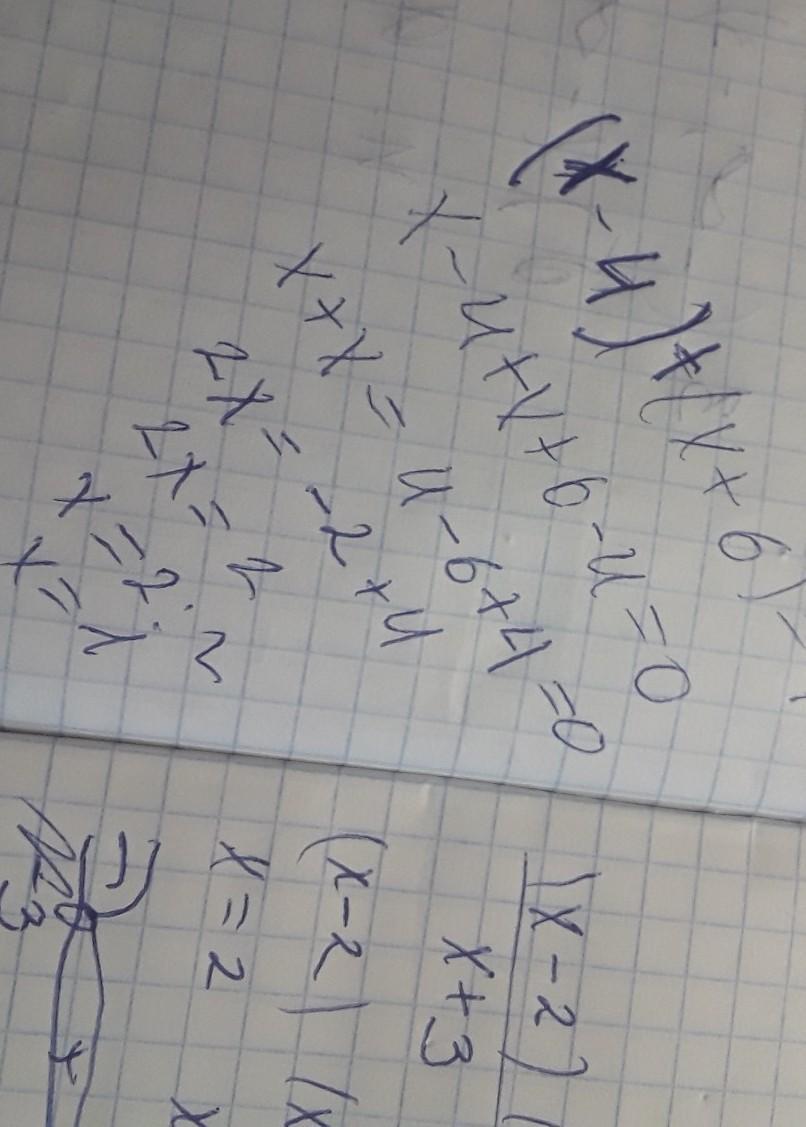 (x-4)+(x+6)-
x-4+x+6-4=0
x+x=4-6+4=0
2x=-2+4
2x=2
x=2:2
x=1
(x-2)(
x+3
(x-2)(x
x=2 x
3 +